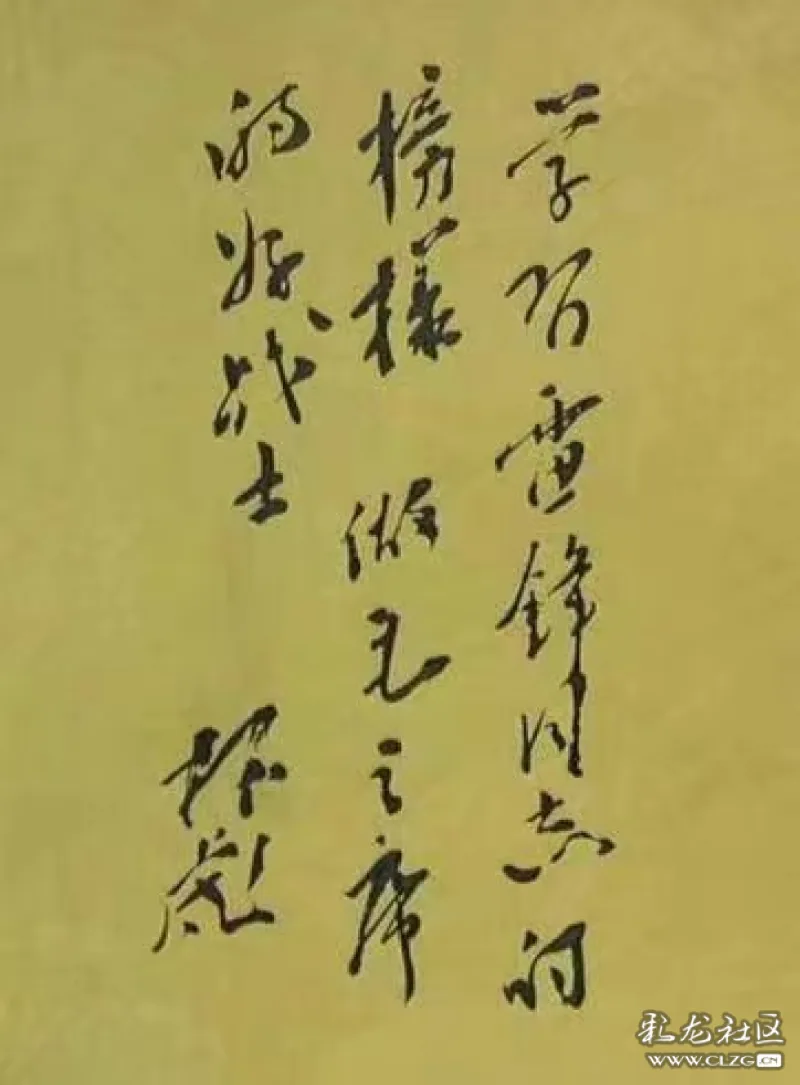 学习雷锋同志的
榜樣 做毛主席
的好战士
林彪
彩龙社区
WWW.CLZG.CN